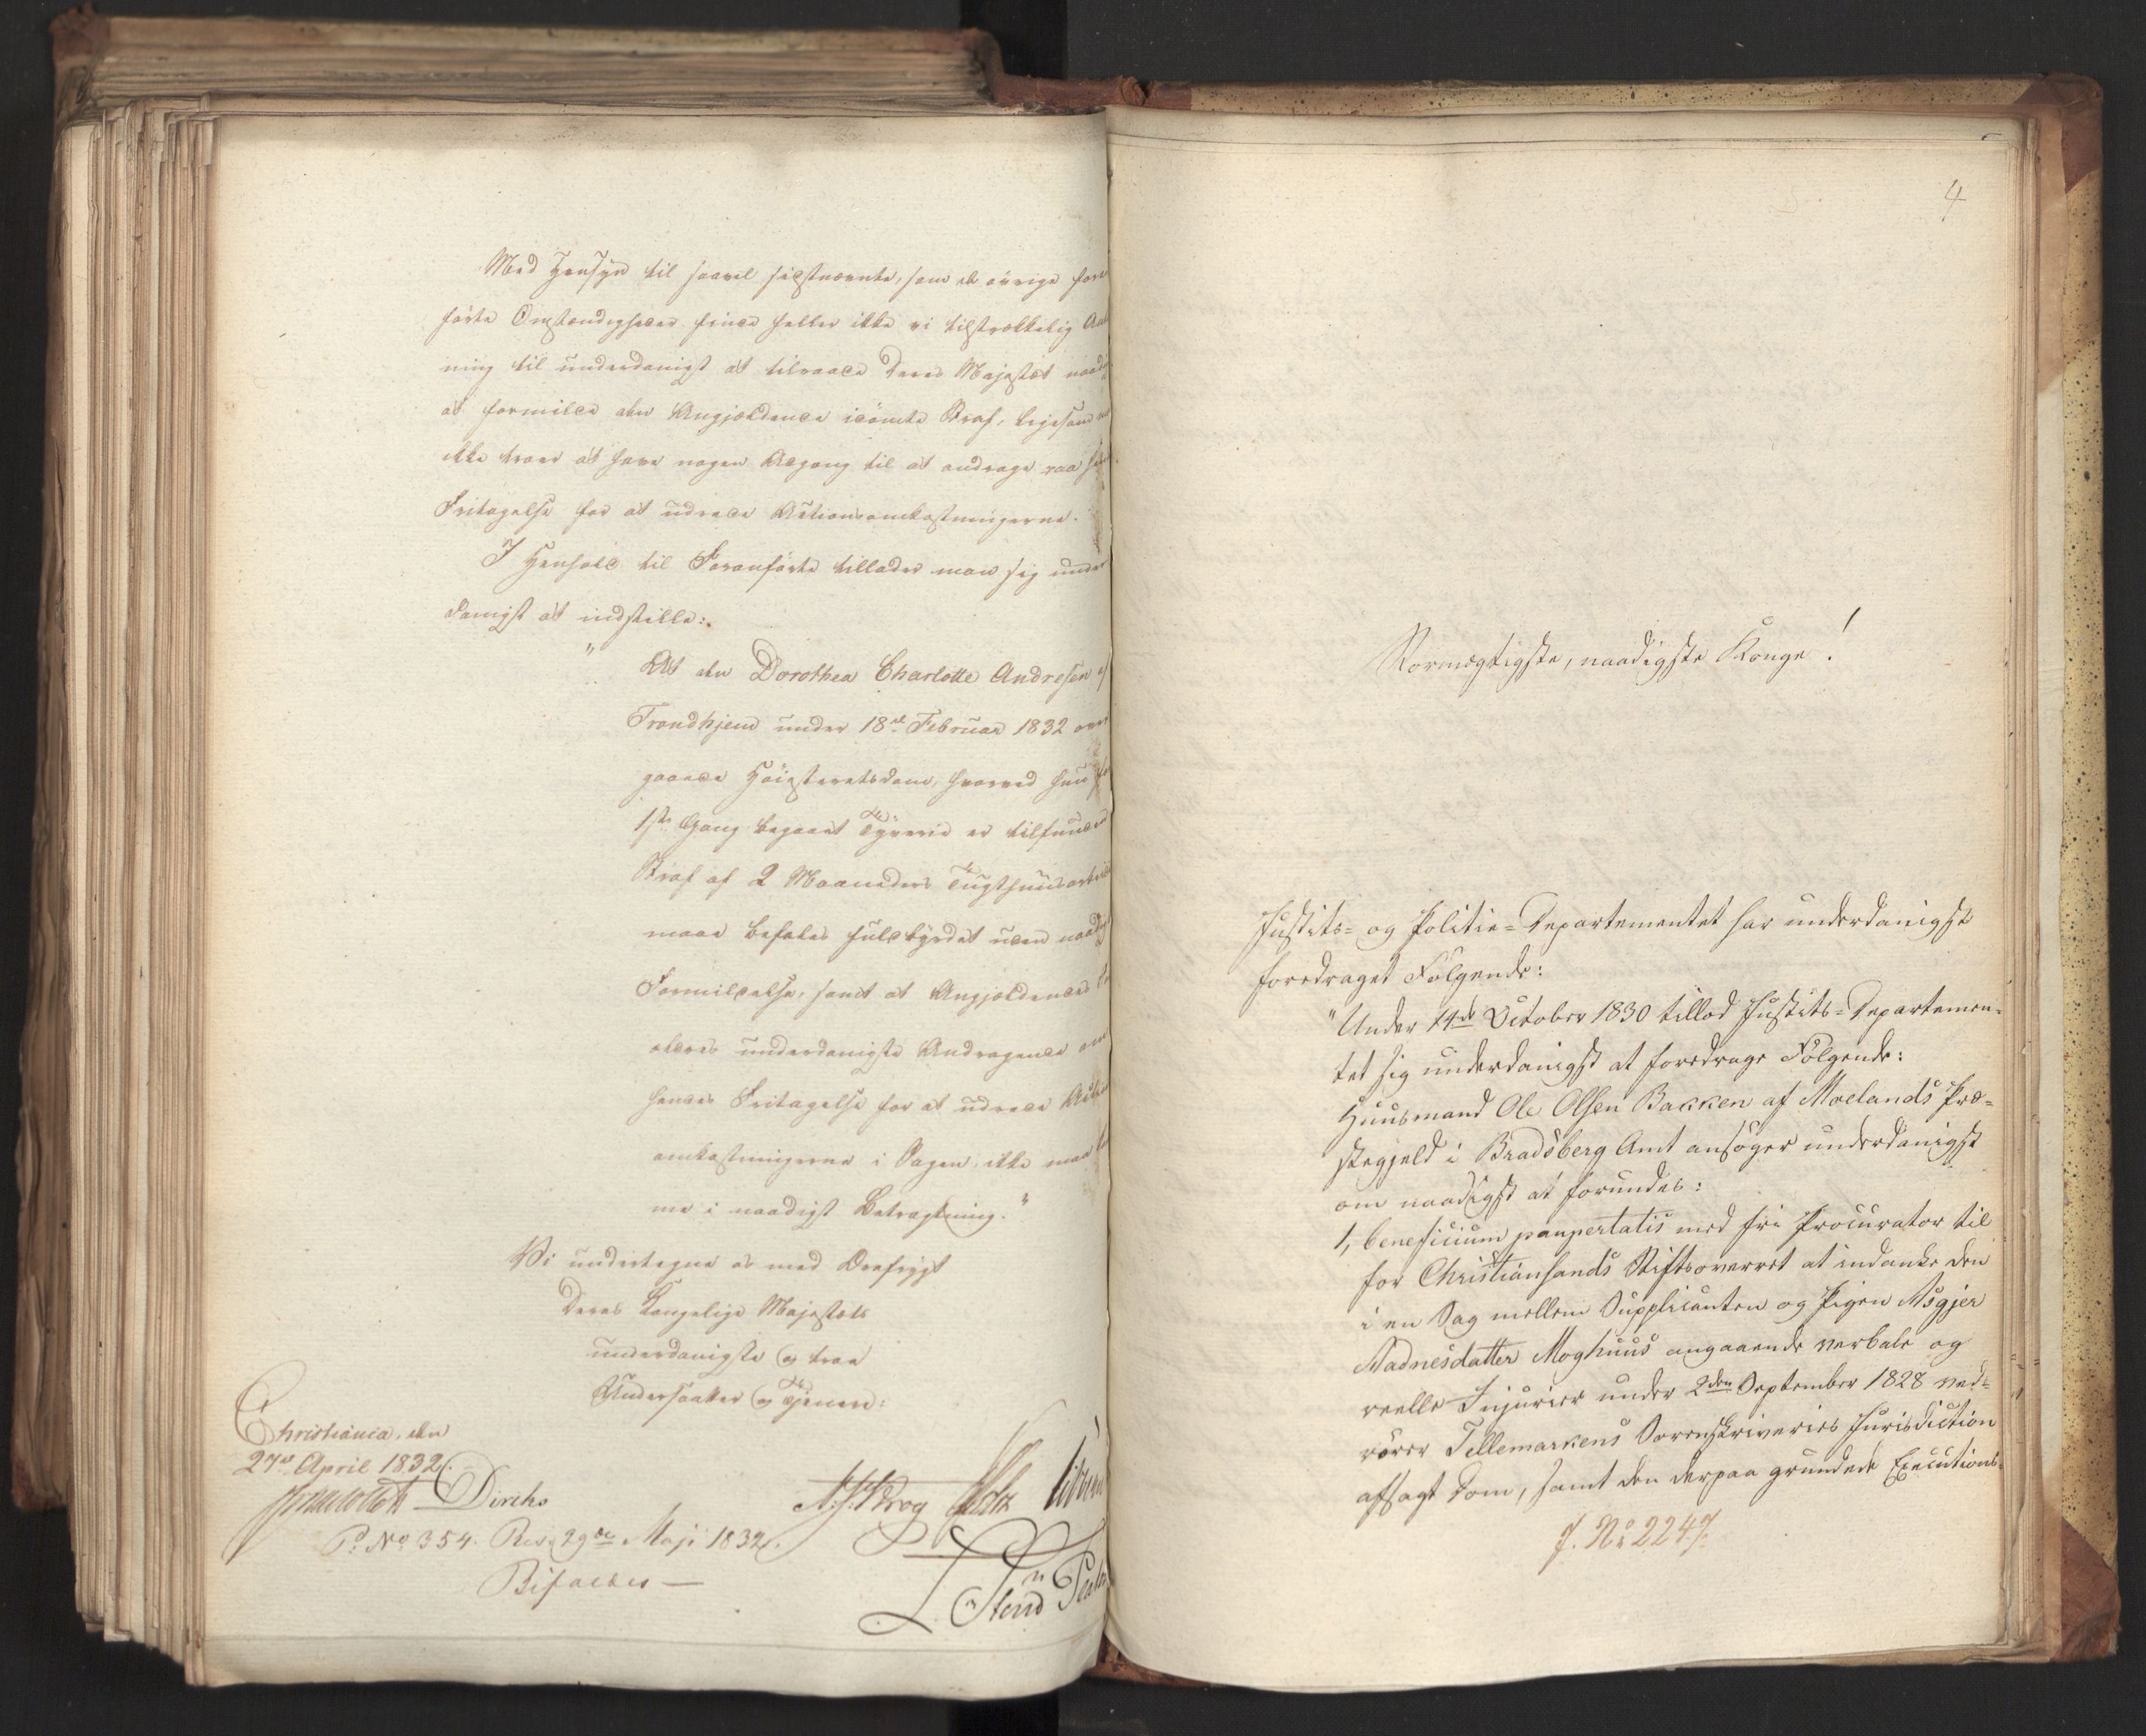 Med Hensyn til saavel sidstnævnte, som de øvrige for
førte Omstændigheder finde heller ikke vi tilstrækkelig An
ning til underdanigst at tilraade Deres Majestæt naad
at formilde den Angjeldende idømte Straf, ligesom
ikke troer at have nogen Adgang til at andrage paa
Fritagelse for at udrede Actionsomkostningerne.
I Henhold til Foranførte tillader man sig under
danigst at indstille:
" At den Dorothea Charlotte Andresen af
Trondhjem under 18de Februar 1832 over
gaaede Høiesteretsdom, hvorved hun for
1ste Gang begaaet Tyverie er tilfunden
Straf af 2 Maaneders Tugthuusarbeide
maae befales fuldbyrdet uden naadigst
Formildelse, samt at Angjeldendes
underdanigste Andragende om
hendes Fritagelse for at udrede Actions
omkostningerne i Sagen ikke maa
me i naadigst Betragtning."
Vi undertegne os med Ærefrygt
Deres Kongelige Majestæts
underdanigste og troe
Undersaatter og Tjenere:
Christiania, den
27de April 1832.
Diriks
P. No 354. Res. 29de Maji 1832.
Bifaldes —
4
Stormægtigste, naadigste Konge!
Justits- og Politie-Departementet har underdanigst
foredraget Følgende:
"Under 14de October 1830 tillod Justits-Departemen-
tet sig underdanigst at foredrage Følgende:
Huusmand Ole Olsen Bakken af Moelands Præ-
stegjeld i Bradsberg Amt ansøger underdanigst
om naadigst at forundes:
1, beneficium paupertatis med fri Procurator til
for Christiansands Stiftsoverret at indanke den
i en Sag mellem Supplicanten og Pigen Asgjer
Aadnesdatter Moghuus angaaende verbale og
reelle Injurier under 2den September 1828 ved
Tellemarkens Sorenskriveries Jurisdiction
afsagt Dom, samt den derpaa grundede Executions-
J. No 2247.